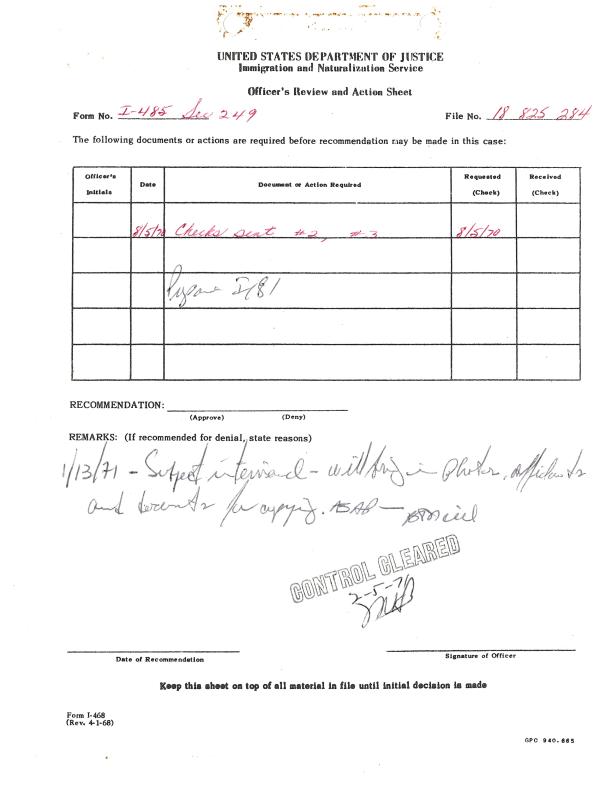 UNITED STATES DEPARTMENT OF JUSTICE
Immigration and Naturalization Service
Officer's Review and Action Sheet
Form No. I-485 Sec 249 File No. 18 825 284
The following documents or actions are required before recommendation may be made in this case:
Officer's Initials Date Document or Action Required Requested (Check) Received (Check)
8/5/70 Checks sent #2, #3 8/5/70
I/81
RECOMMENDATION:
(Approve) (Deny)
REMARKS: (If recommended for denial, state reasons)
1/13/71 - Subject interviewed - will bring in photos, affidavits
and documents for copying. ASAP —
CONTROL CLEARED
2-5-71
Date of Recommendation Signature of Officer
Keep this sheet on top of all material in file until initial decision is made
Form I-468
(Rev. 4-1-68)
GPO 940.665